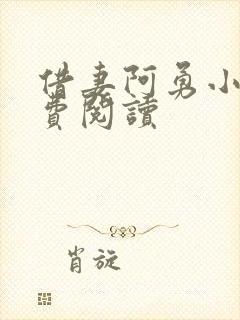 借妻阿勇小
費閱讀
肖旋